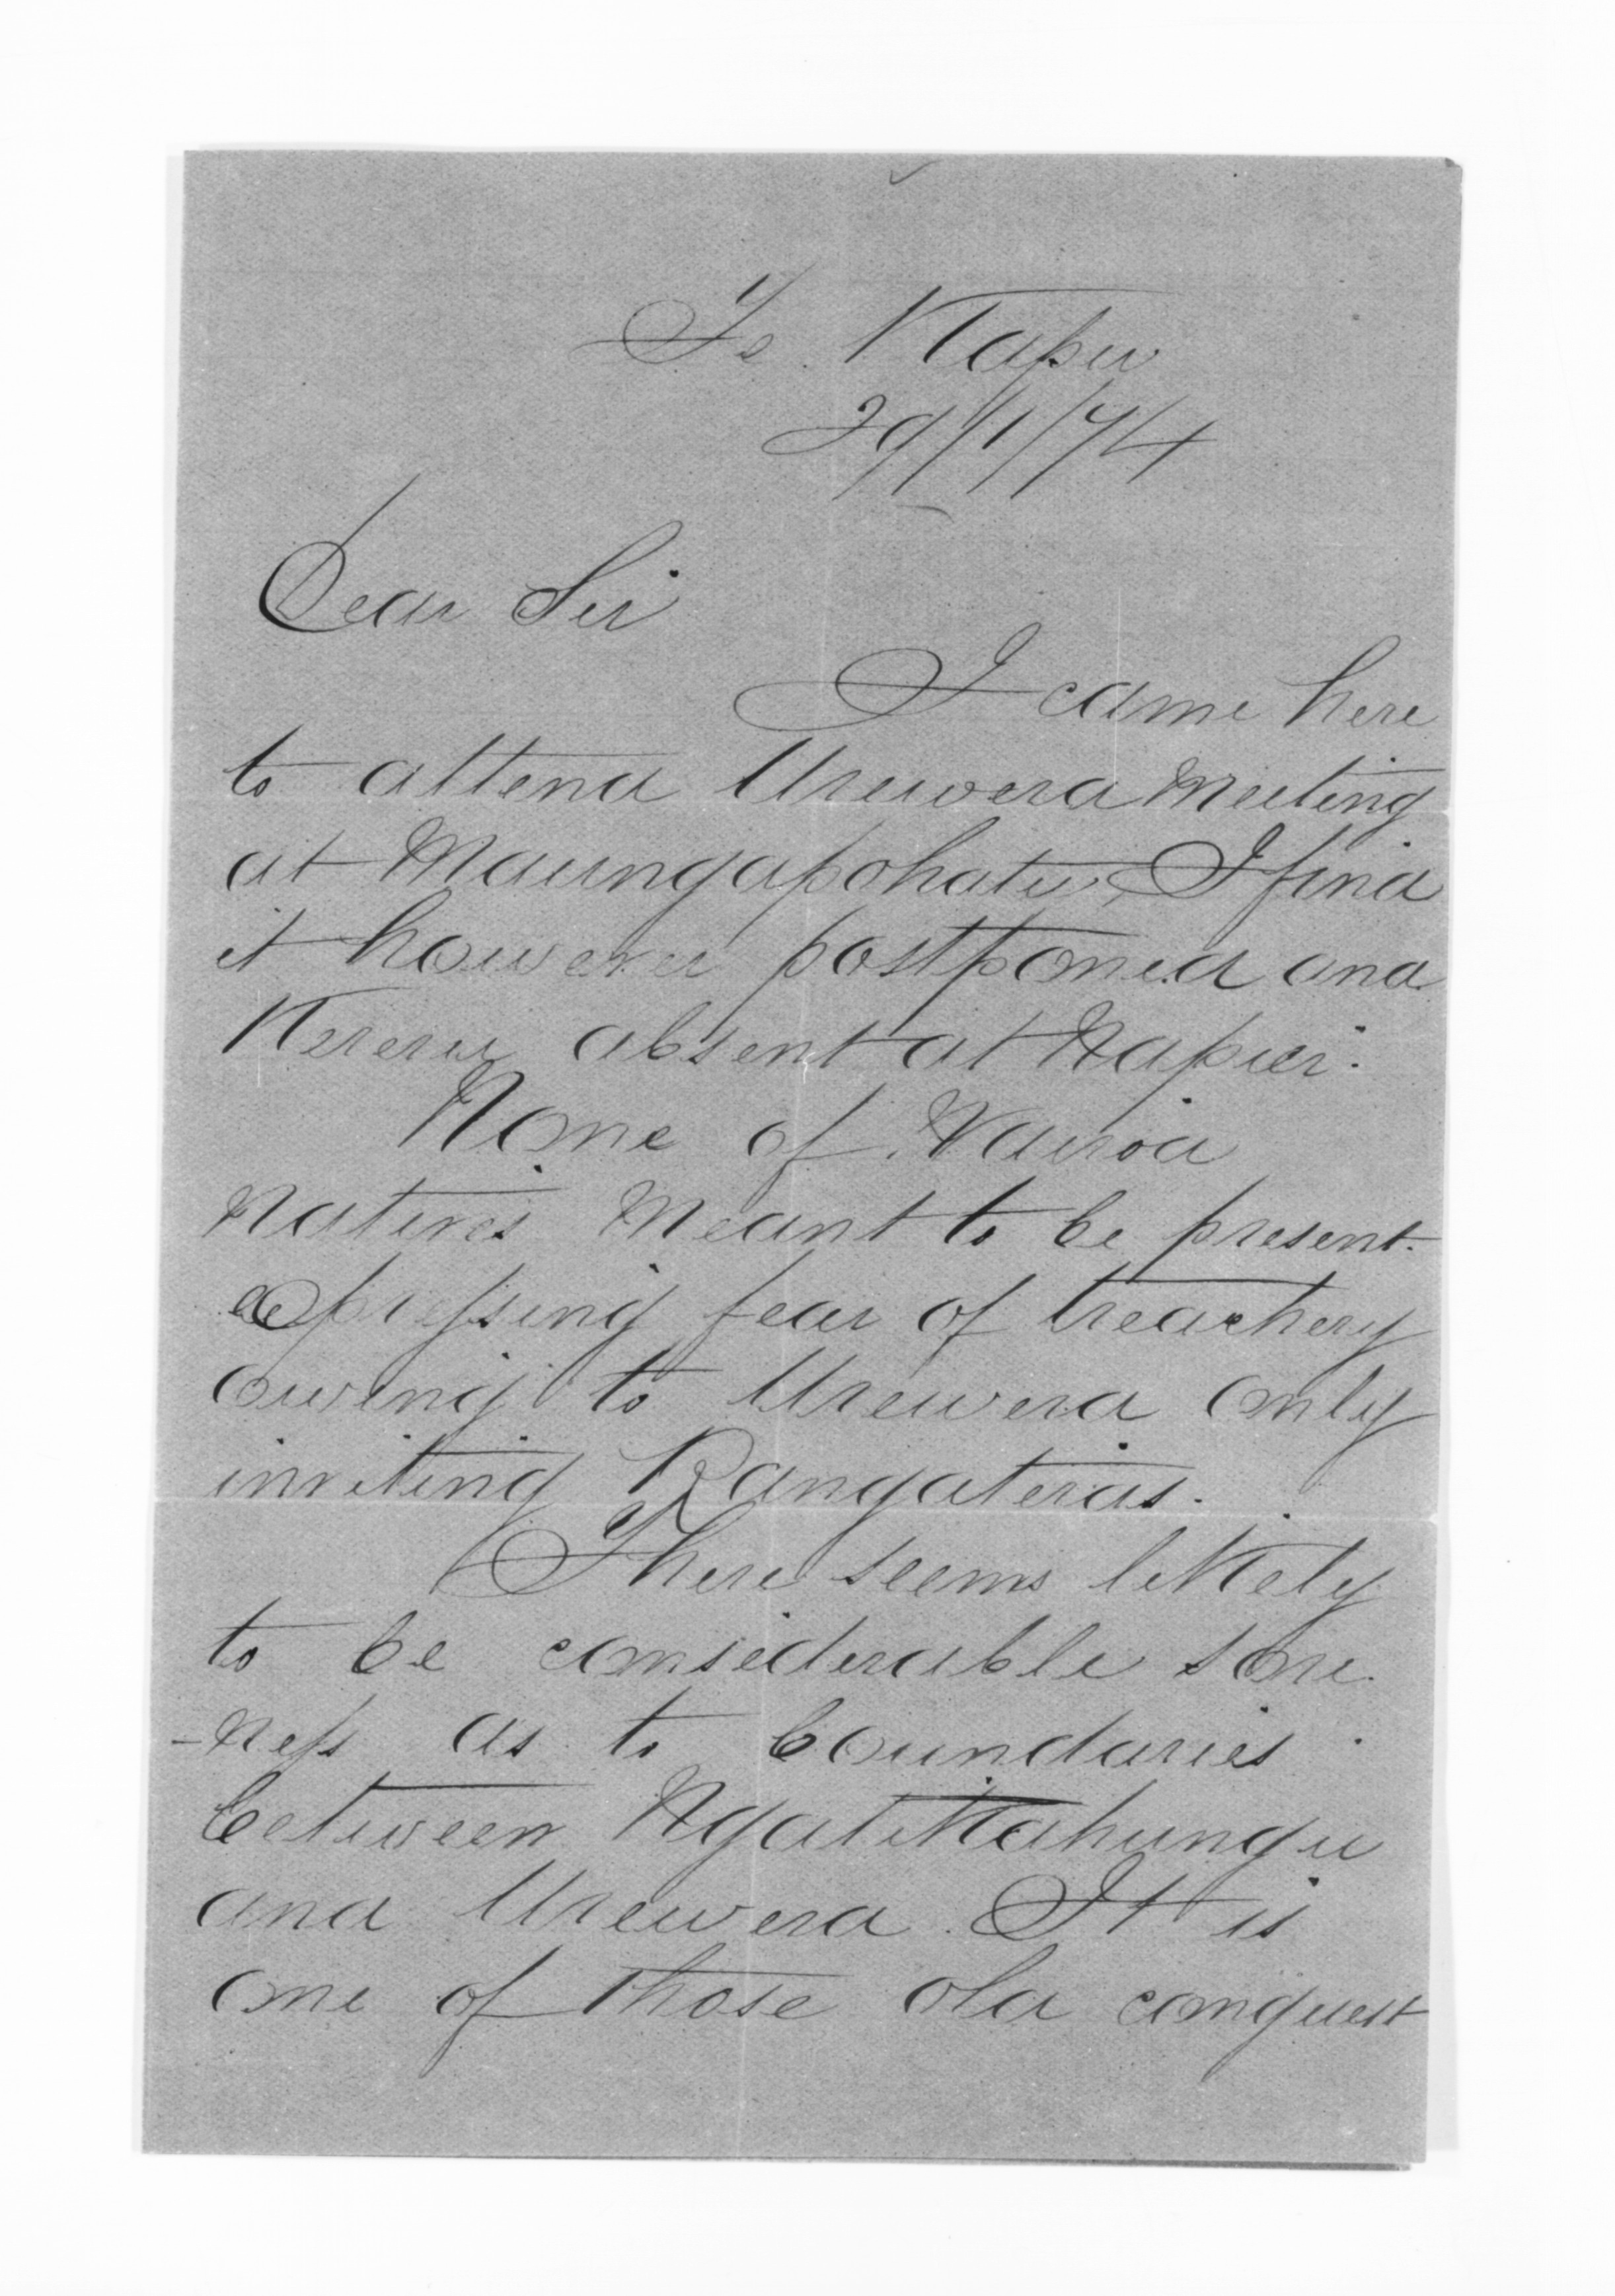 Te Kapu
29/1/74
Dear Sir
I came here
to attend Urewera Meeting
at Maungapohatu, I find
it however postponed and
Kereru absent at Napier.
None of Wairoa
Natives Meant to be present.
expressing fear of treachery
owing to Urewera only
inviting Rangatiras.
There seems likely
to be considerable sore
-ness as to boundaries
between NgatiKahungu
and Urewera. It is
one of those old conquest